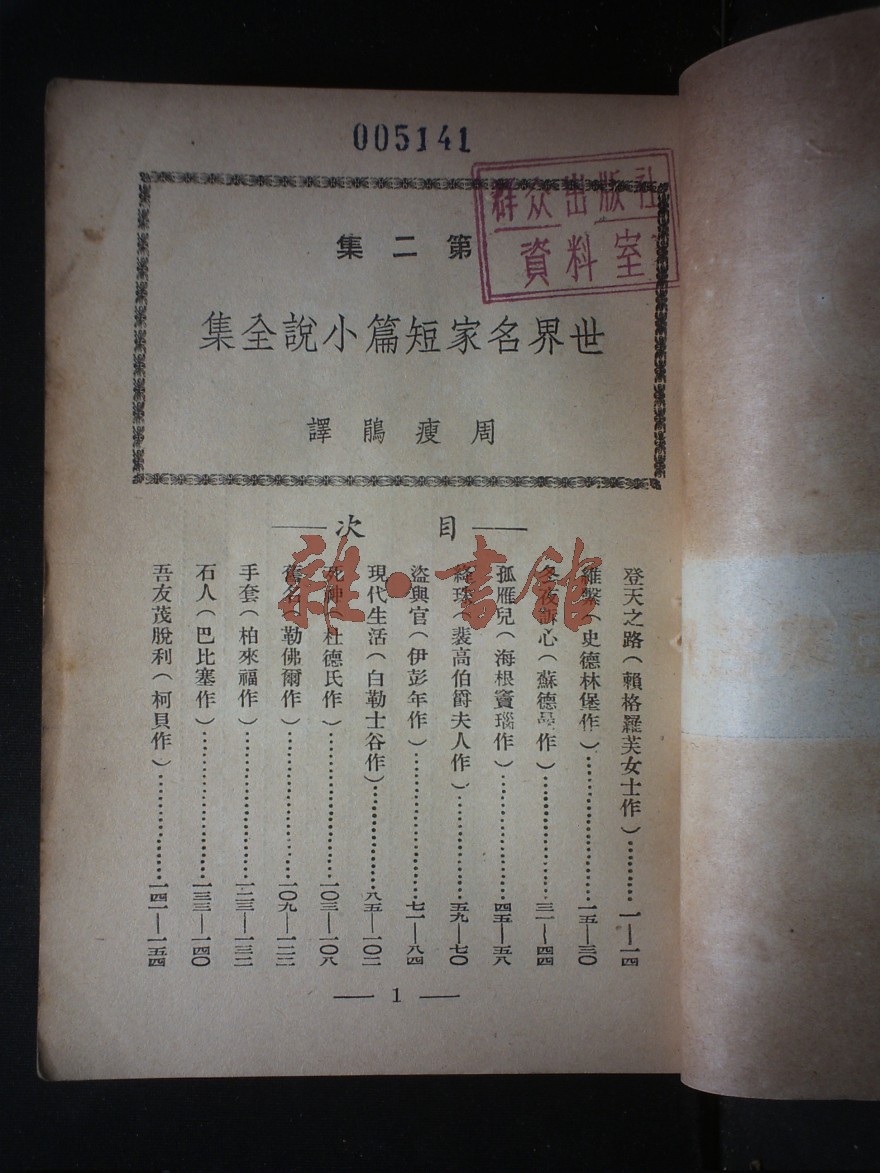 005141
群众出版社
資料室
第二集
世界名家短篇小說全集
周瘦鵑譯
目次
登天之路(賴格羅芙女士作)………一—一四
維繫(史德林堡作)………一五—三〇
冬夜 心(蘇德 作)………三一—四四
孤雁兒(海根竇瑙作)………四五—五八
綺珠(裴高伯爵夫人作)………五九—七〇
盜與官(伊彭年作)………七一—八四
現代生活(白勒士谷作)………八五—一〇二
死神(杜德氏作)………一〇三—一〇八
舊名(勒佛爾作)………一〇九—一二二
手套(柏來福作)………一二三—一三二
石人(巴比塞作)………一三三—一四〇
吾友茂脫利(柯貝作)………一四一—一五四
— 1 —
雜·書館